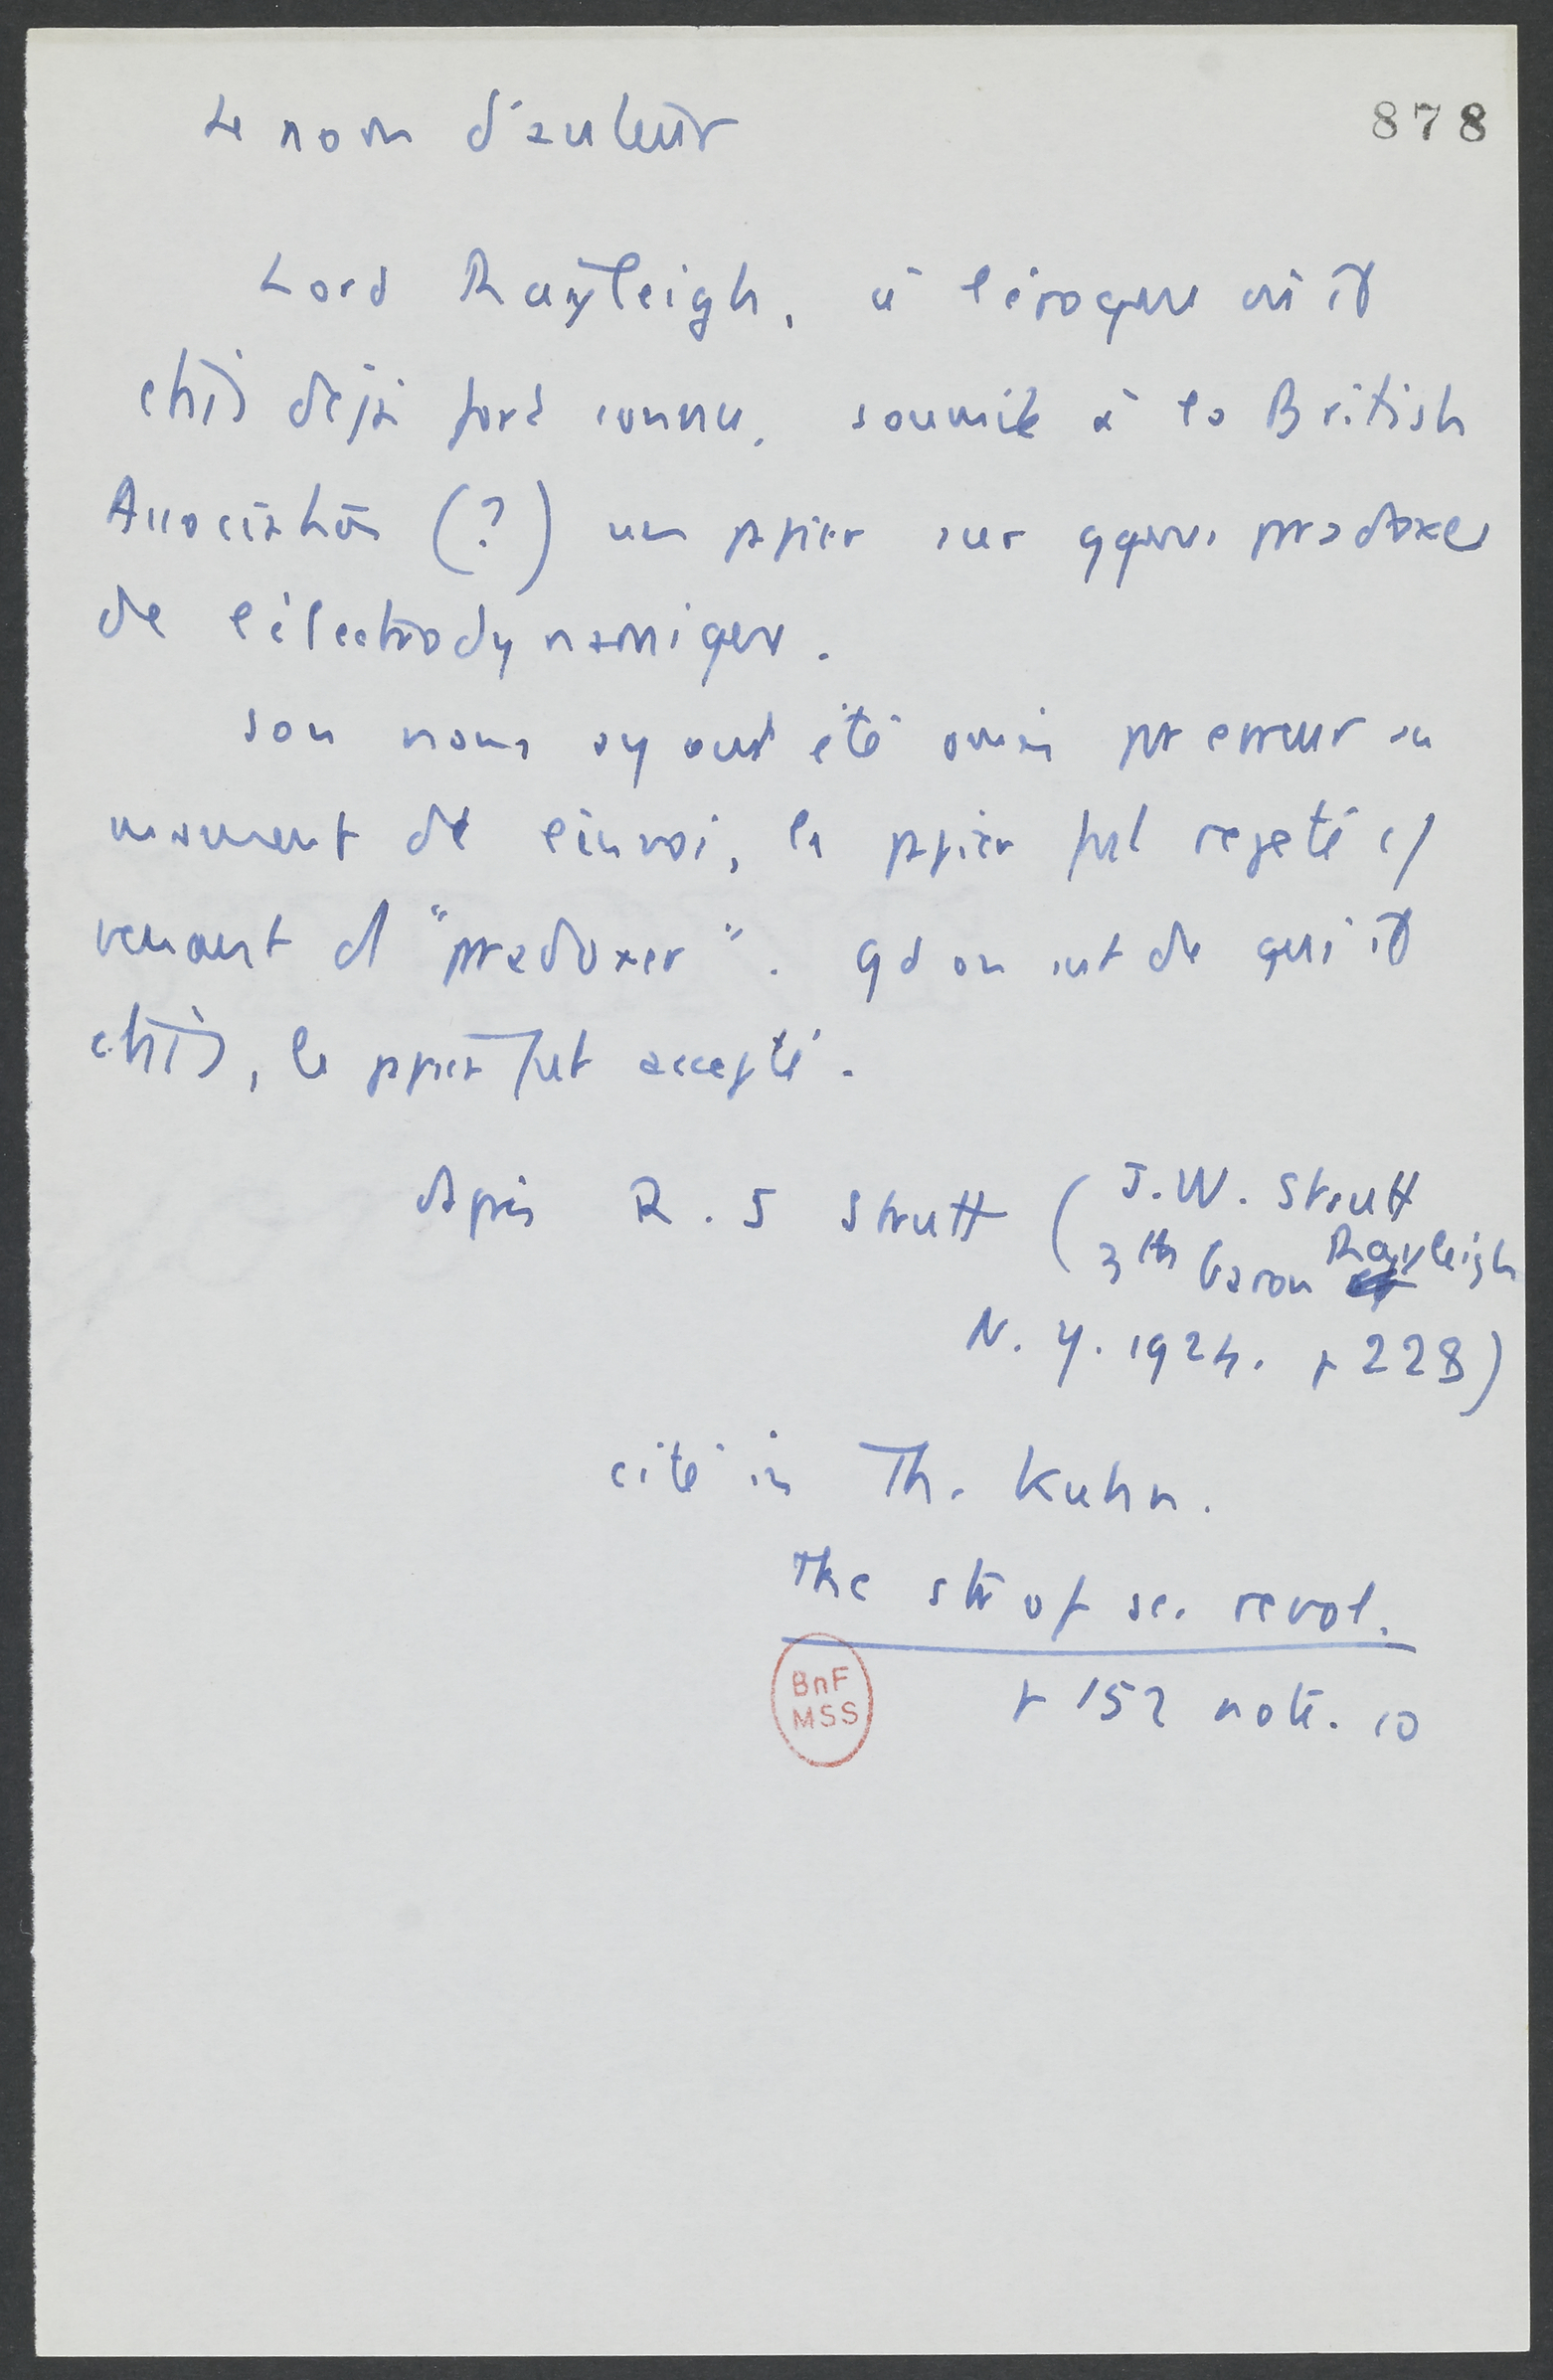 Le nom d'auteur
878
Lord Rayleigh, à l'époque où il
était déjà fort connu, soumit à la British
Association (?) un papier sur qques paradoxes
de l'électrodynamique.
Son nom ayant été omis par erreur au
moment de l'envoi, le papier fut rejeté c/
venant d'"paradoxer". Qd on sut de qui il
était, le papier fut accepté.
d'après R. S Strutt (J.W. Strutt
3th baron Rayleigh
N. Y. 1924. p 228)
cité in Th. Kuhn.
The str of sc. revol.
p 152 note. 10
BnF
MSS